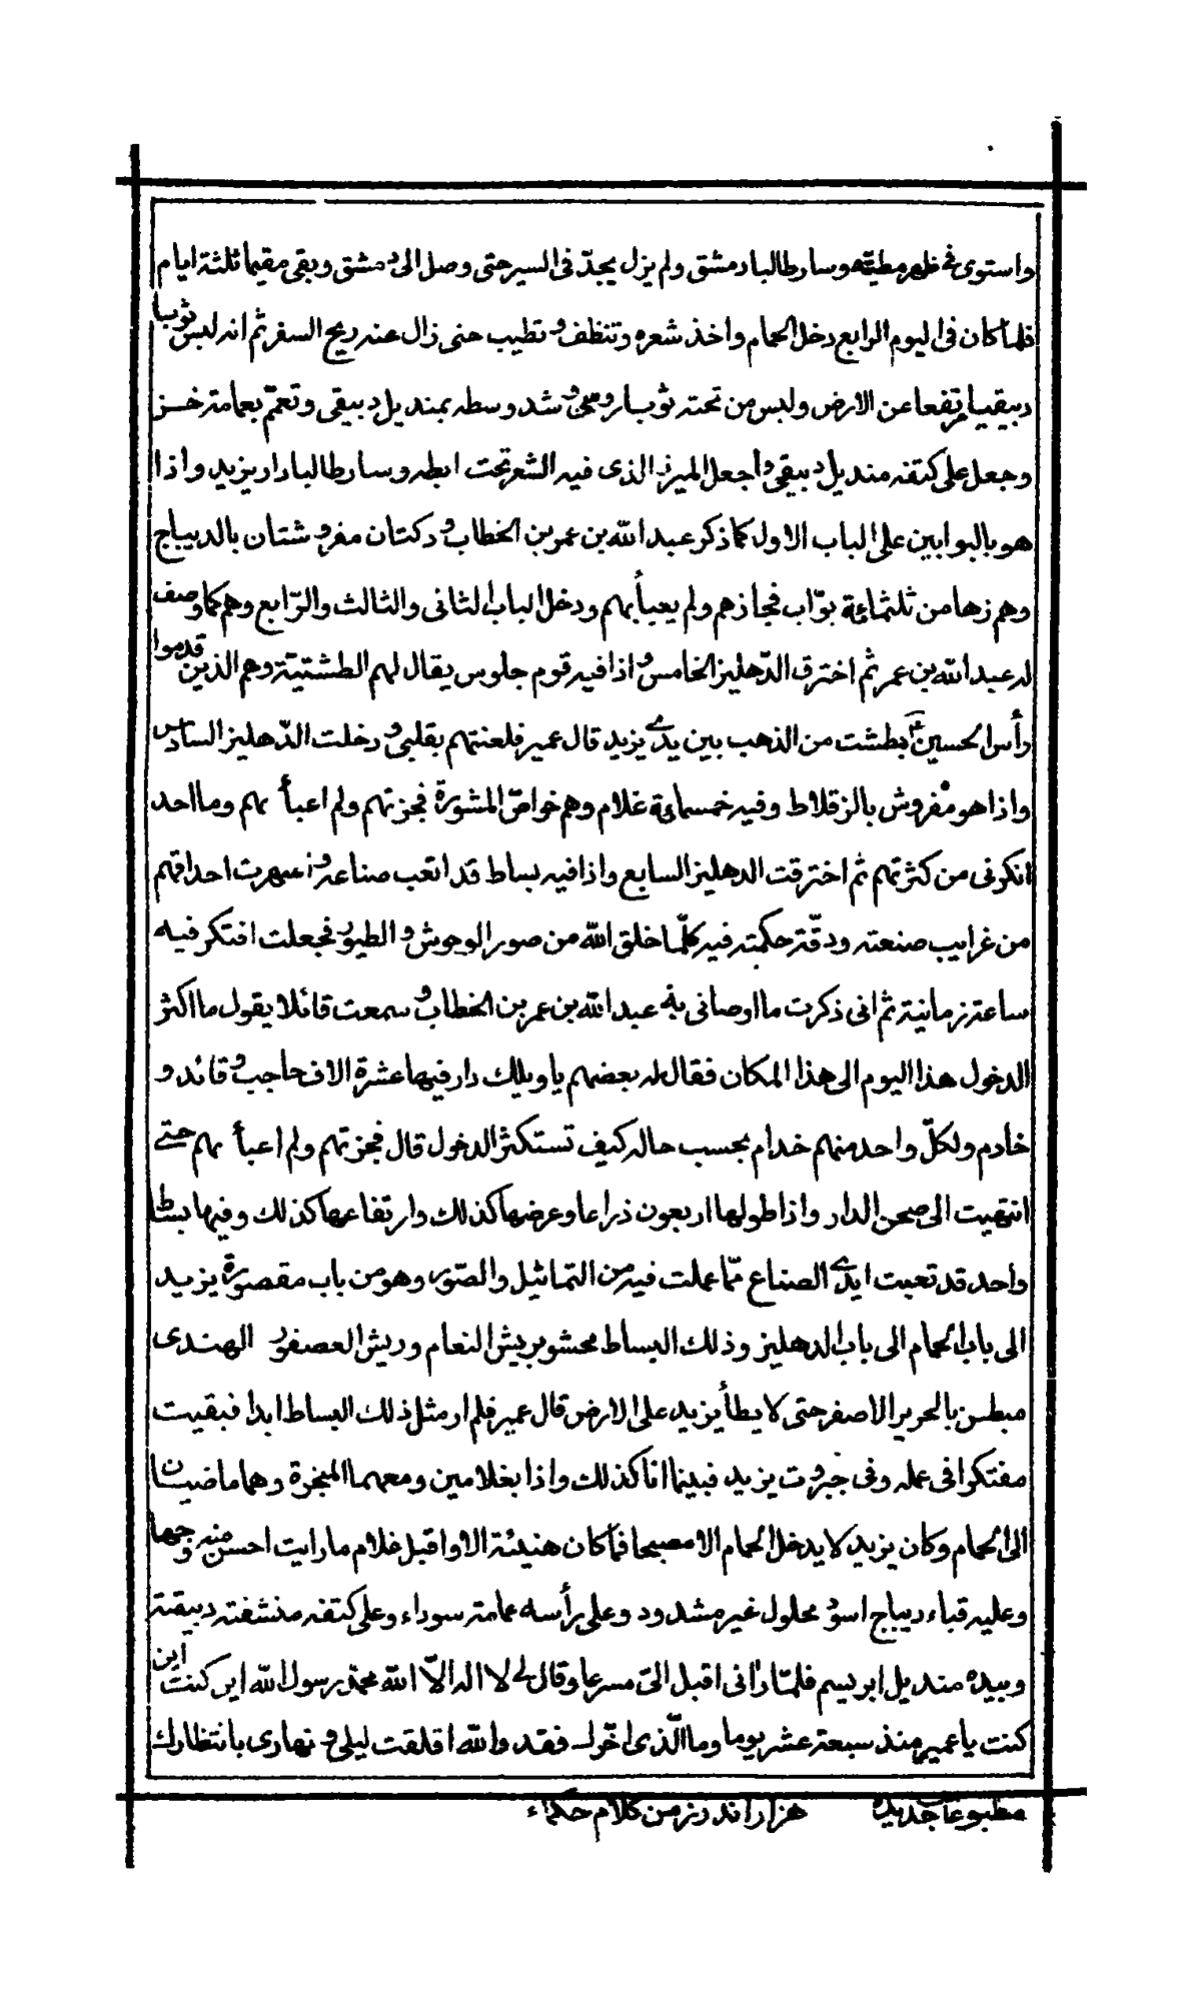 واستوى فى ظهر مطيته وسار طالبا دمشق ولم يزل يجدّ فى السير حتى وصل الى دمشق وبقى مقيما ثلثة ايام
فلما كان فى اليوم الرابع دخل الحمام واخذ شعره وتنظف وتطيب حتى زال عنه ريح السفر ثم انه لبس ثوبا
دبيقيا مرتفعا عن الارض ولبس من تحته ثوبا روميا وشد وسطه بمنديل دبيقى وتعمّم بعمامة خز
وجعل على كتفه منديل دبيقى واجعل الميزر الذى فيه الشعر تحت ابطه وسار طالبا دار يزيد واذا
هو بالبوابين على الباب الاول كما ذكر عبد الله بن عمر بن الخطاب و دكتان مفروشتان بالديباج
وهم زها من ثلثمائة بوّاب فجازهم ولم يعبأ بهم ودخل الباب الثانى والثالث والرّابع وهم كما وصف
له عبد الله بن عمر ثم اخترق الدّهليز الخامس واذا فيه قوم جلوس يقال لهم الطشتيّة وهم الذين قدموا
رأس الحسين ع بطشت من الذهب بين يدے يزيد قال عمير فلعنتهم بقلبى ودخلت الدّهليز السادس
واذا هو مفروش بالزقلاط وفيه خمسمائة غلام وهم خواصّ المشورة فجزتهم ولم اعبأ بهم وما احد
انكرنى من كثرتهم ثم اخترقت الدهليز السابع واذا فيه بساط قد اتعب صناعه واسهرت احداقهم
من غرايب صنعته ودقّة حكمته فيه كلّما خلق الله من صور الوحوش والطيور فجعلت افتكر فيه
ساعة زمانية ثم انى ذكرت ما اوصانى به عبد الله بن عمر بن الخطاب و سمعت قائلا يقول ما اكثر
الدخول هذا اليوم الى هذا المكان فقال له بعضهم يا ويلك دار فيها عشرة الاف حاجب وقائد و
خادم ولكلّ واحد منهم خدام بحسب حاله كيف تستكثر الدخول قال فجزتهم ولم اعبأ بهم حتے
انتهيت الى صحن الدار واذا طولها اربعون ذراعا وعرضها كذلك وارتفاعها كذلك وفيها بساط
واحد قد تعبت ايدے الصناع ممّا عملت فيه من التماثيل والصّور وهو من باب مقصورة يزيد
الى باب الحمام الى باب الدهليز وذلك البساط محشو بريش النعام وريش العصفور الهندى
مبطن بالحرير الاصفر حتى لا يطأ يزيد على الارض قال عمير فلم ار مثل ذلك البساط ابدا فبقيت
مفتكرا فى عمله وفى جبروت يزيد فبينما انا كذلك واذا بغلامين ومعهما المبخرة وهما ماضيان
الى الحمام وكان يزيد لا يدخل الحمام الا مصبحا فما كان هنيئة الا واقبل غلام ما رايت احسن منه وجها
وعليه قباء ديباج اسود محلول غير مشدود وعلى رأسه عمامة سوداء وعلى كتفه منشفة دبيقية
وبيده منديل ابريسم فلمّا رانى اقبل الىّ مسرعا وقال لے لا اله الاّ الله محمّد رسول الله اين كنت اين
كنت يا عمير منذ سبعة عشر يوما وما الّذى اخّرك فقد والله اقلقت ليلى و نهارى بانتظارك
مطبوعات جديده هزار اندرز من كلام حكماء